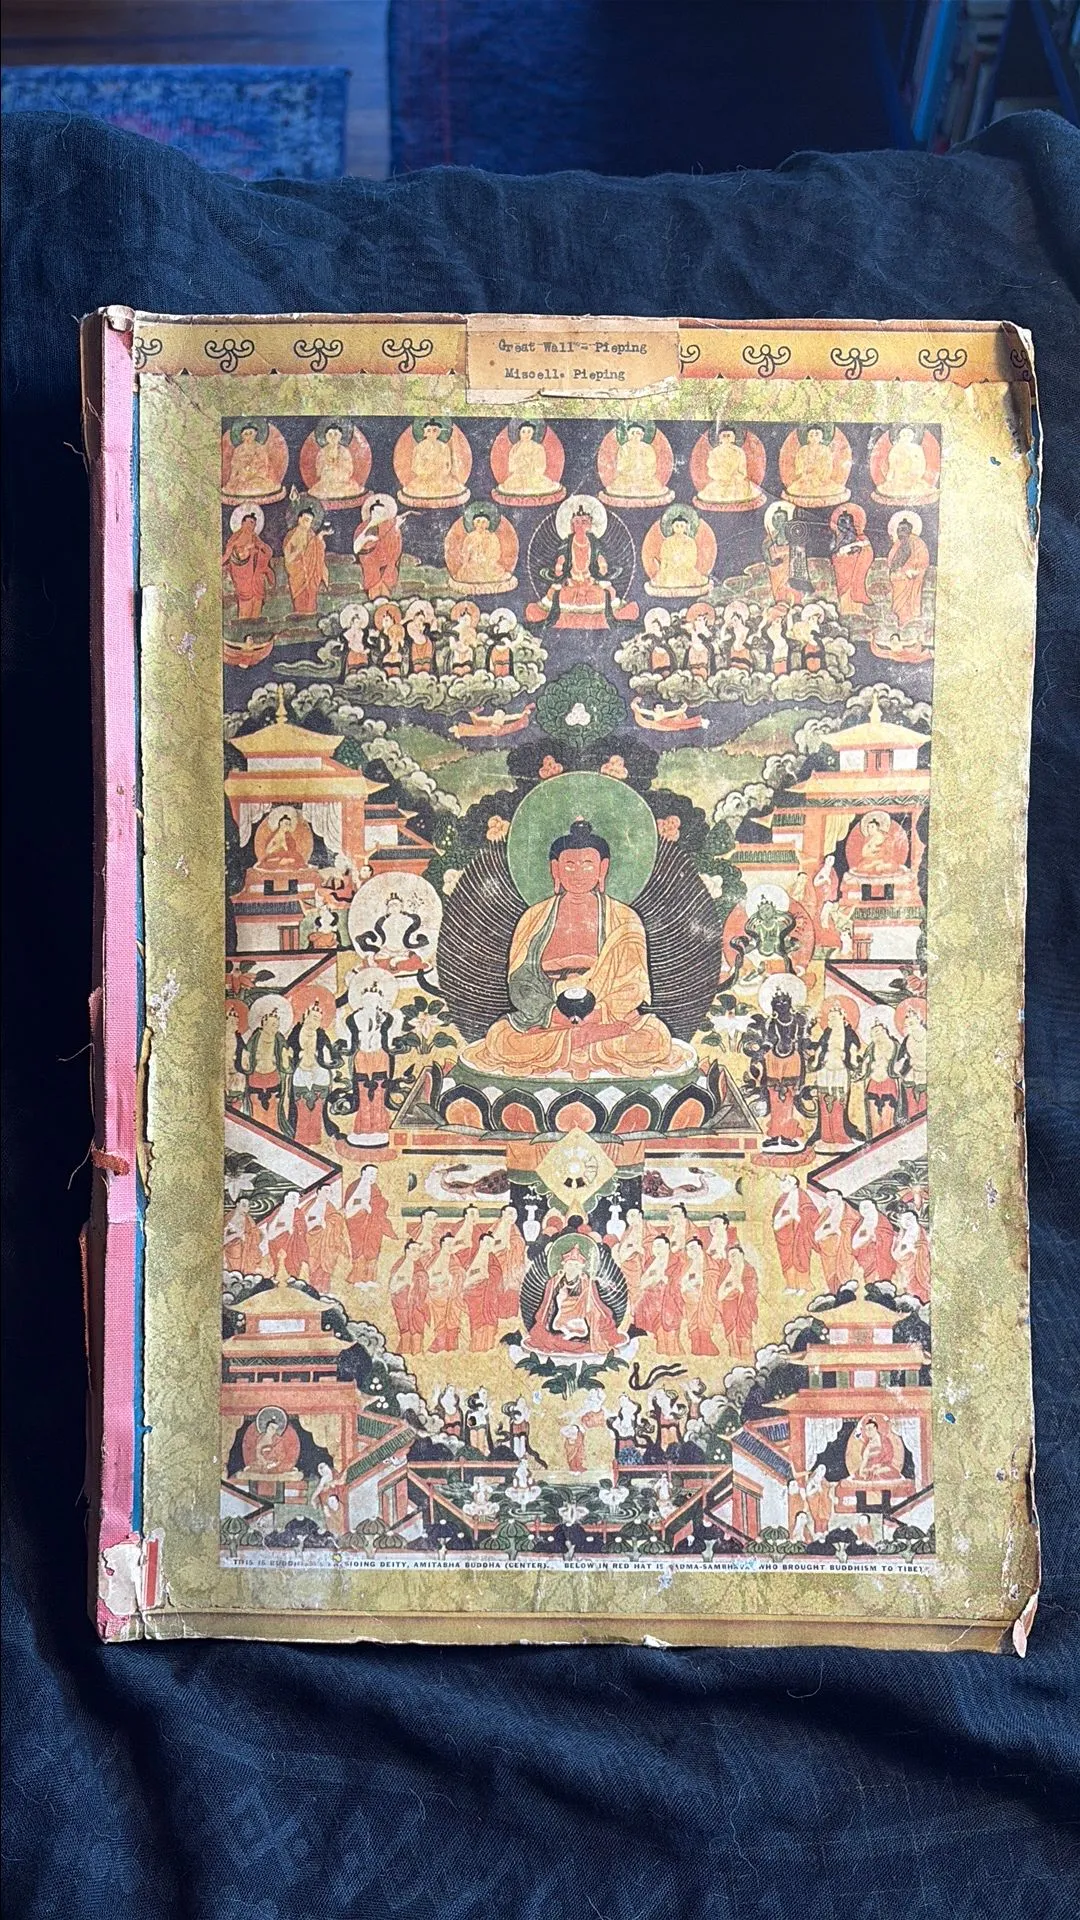 Great Wall - Pieping
Miscell. Pieping
THIS IS BUDDHISM'S PRESIDING DEITY, AMITABHA BUDDHA (CENTER). BELOW IN RED HAT IS PADMA-SAMBHAVA WHO BROUGHT BUDDHISM TO TIBET